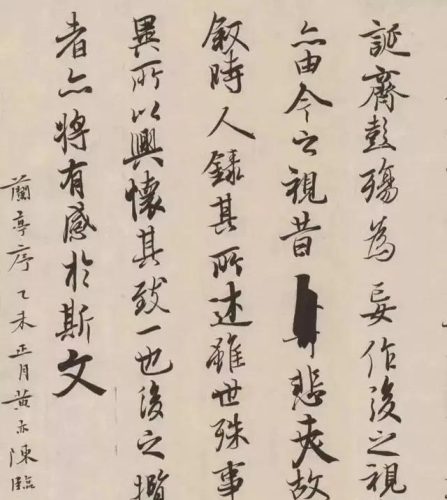 誕齊彭殤為妄作後之視
亦由今之視昔悲夫故
叙時人錄其所述雖世殊事
異所以興懷其致一也後之攬
者亦將有感於斯文
蘭亭序乙未正月黃亦陳臨